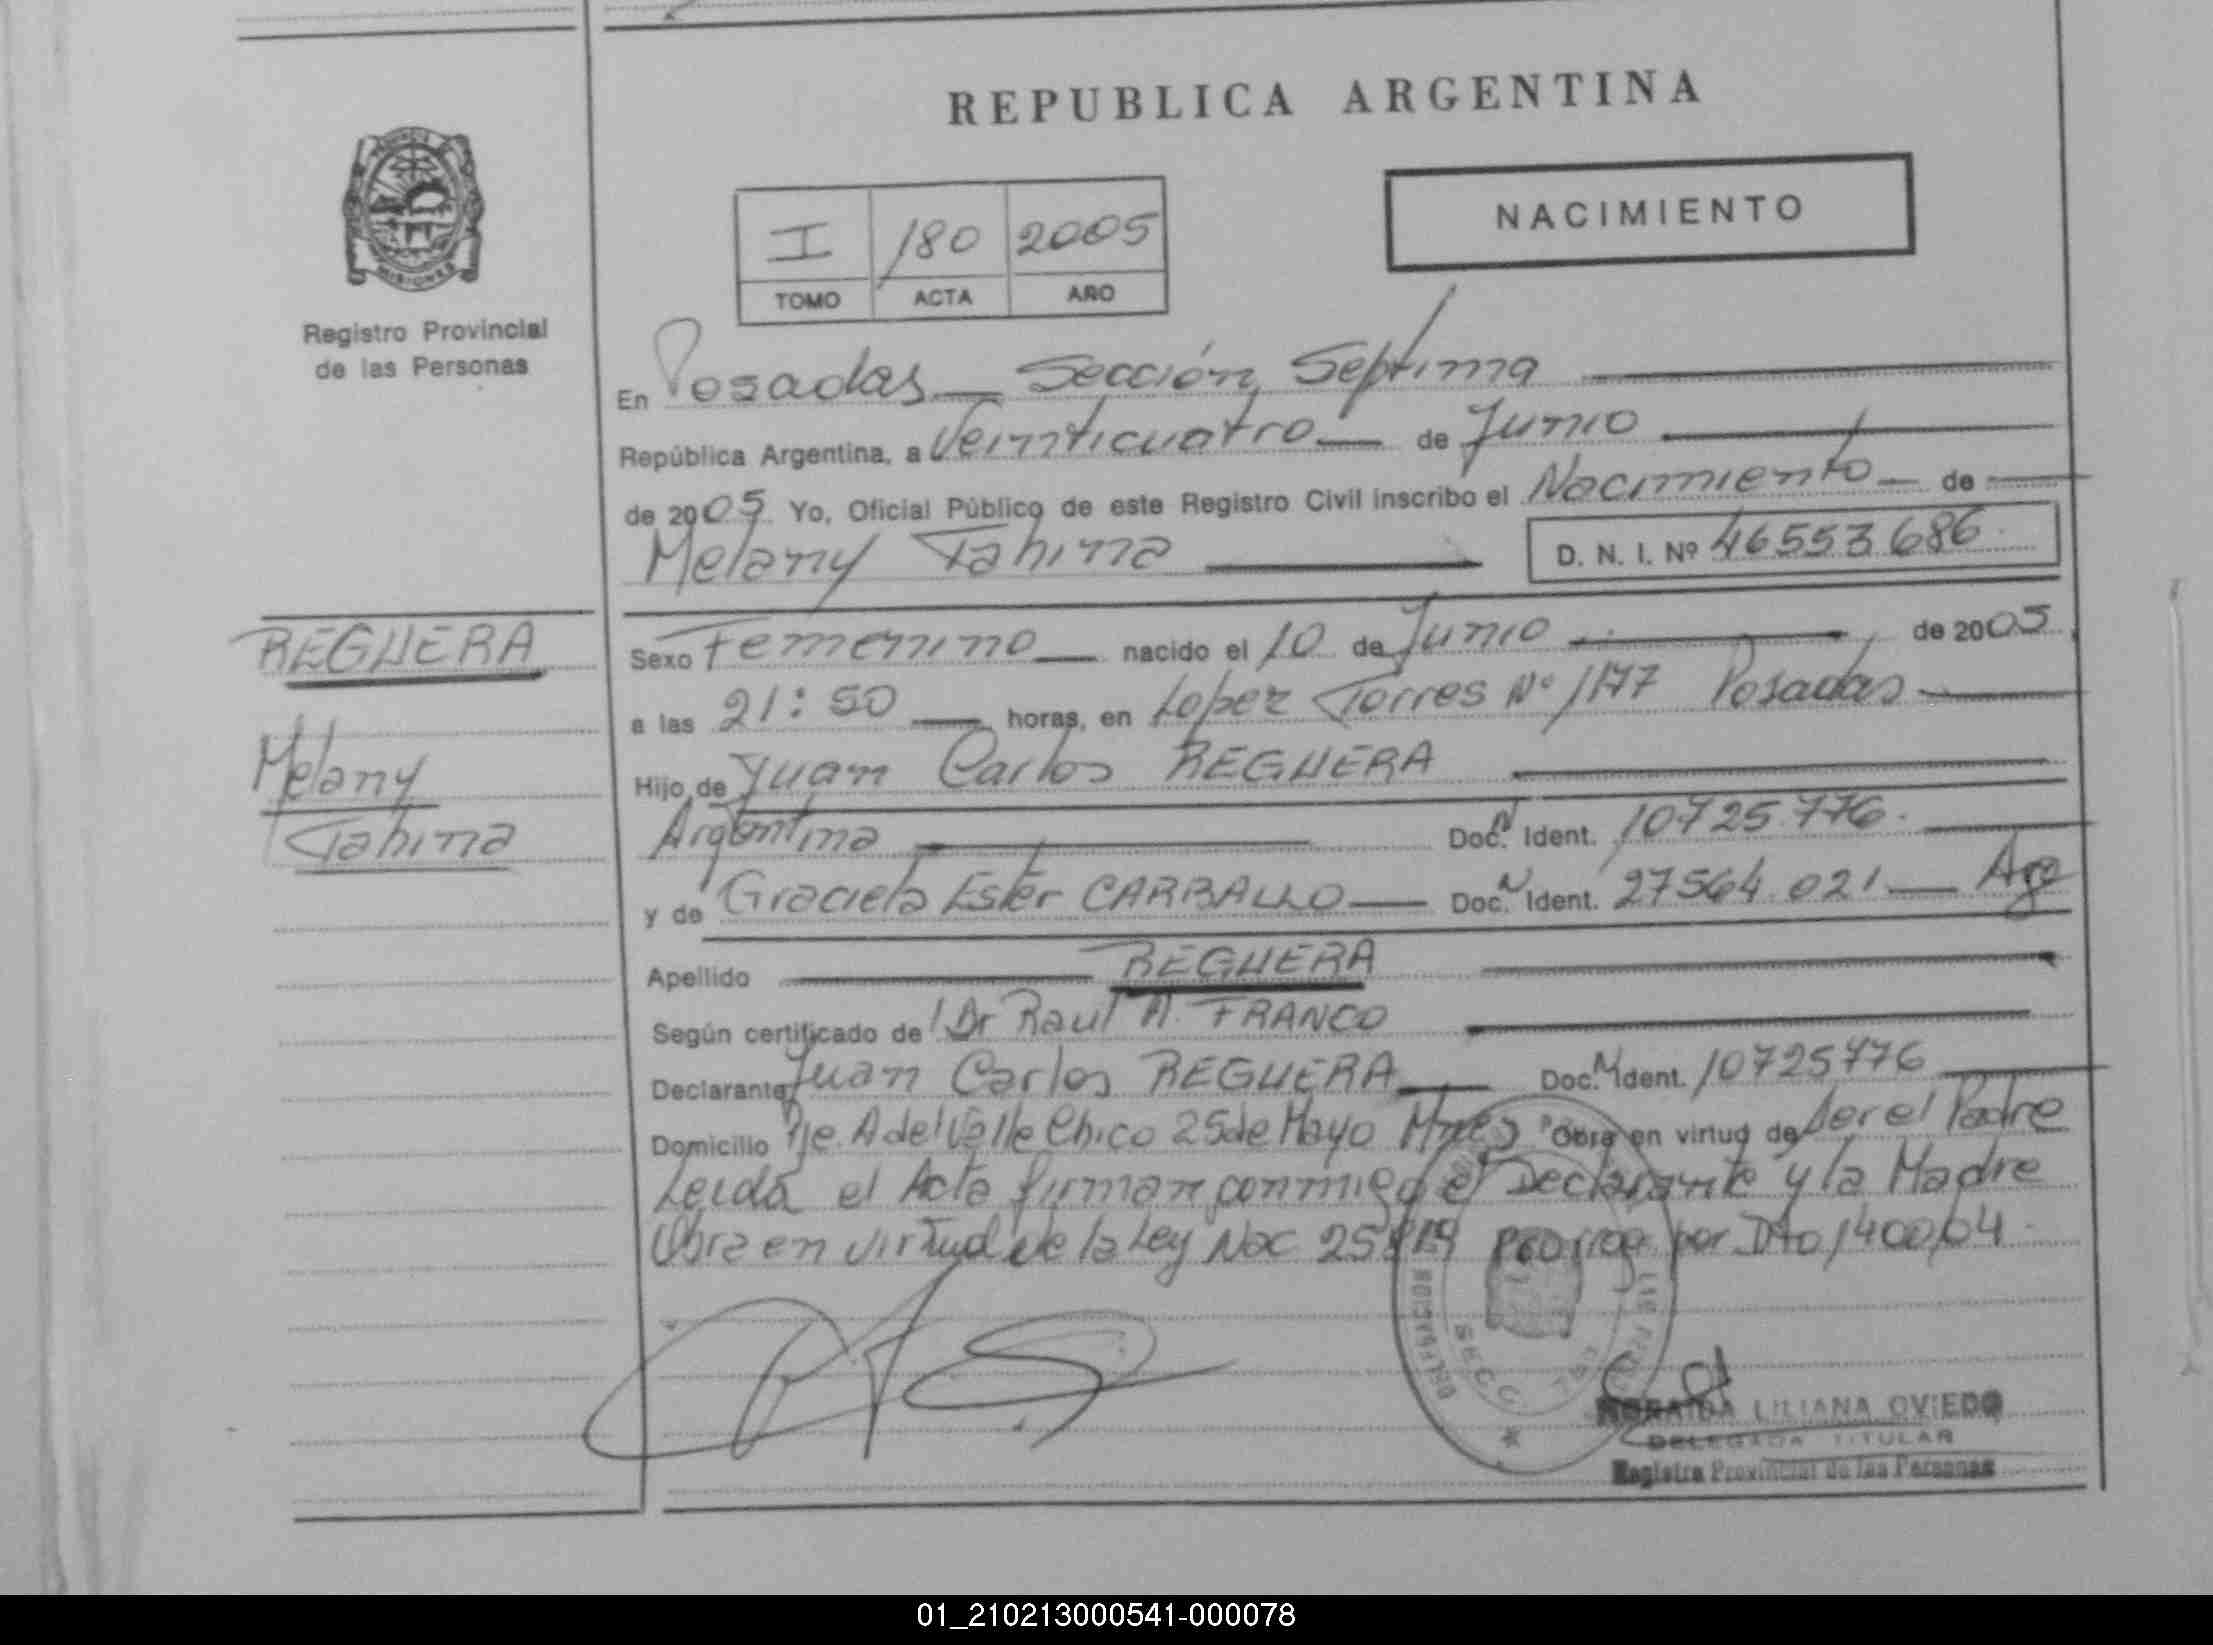 REPUBLICA ARGENTINA
NACIMIENTO
I 180 2005
TOMO ACTA AÑO
MISIONES
Registro Provincial
de las Personas
En Posadas Sección Septima
República Argentina, a Veinticuatro de Junio
de 2005 Yo, Oficial Público de este Registro Civil inscribo el Nacimiento de
Melany Tahina D. N. I. Nº 46553686
REGUERA
Melany
Tahina
Sexo Femenino nacido el 10 de Junio de 2005
a las 21:50 horas, en Lopez Torres Nº 1177 Posadas
Hijo de Juan Carlos REGUERA
Argentina Doc. Ident. 10725776
y de Graciela Ester CARBALLO Doc. Ident. 27564.021 Arg
Apellido REGUERA
Según certificado de Dr Raul A. FRANCO
Declarante Juan Carlos REGUERA Doc. Ident. 10725776
Domicilio Pje. A del Valle Chico 25 de Mayo Mnes Obra en virtud de ser el Padre
Leida el Acta firman conmigo el Declarante y la Madre
Obra en virtud de la Ley Nac por Dto 1400/04
DELEGACION
SECC.
LILIANA OVIEDO
DELEGADA TITULAR
Registro Provincial de las Personas
01_210213000541-000078